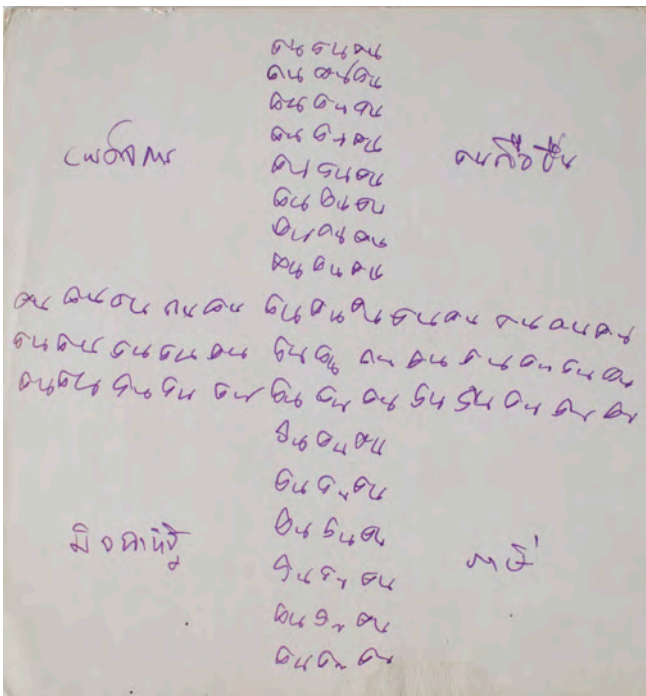 คนคนคน
คนคนคน
คนคนคน
คนคนคน
เผด็จการ
คนถือปืน
คนคนคน
คนคนคน
คนคนคน
คนคนคน
คน คนคน คนคน คนคนคนคนคน คนคนคน
คนคน คนคนคน คนคน คน คน คนคนคนคน
คนคน คนคน คน คน คน คน คน คน คน คน คน
คนคนคน
คนคนคน
คนคนคน
มิจฉาทิฐิ
ภาษี
คนคนคน
คนคนคน
คนคนคน